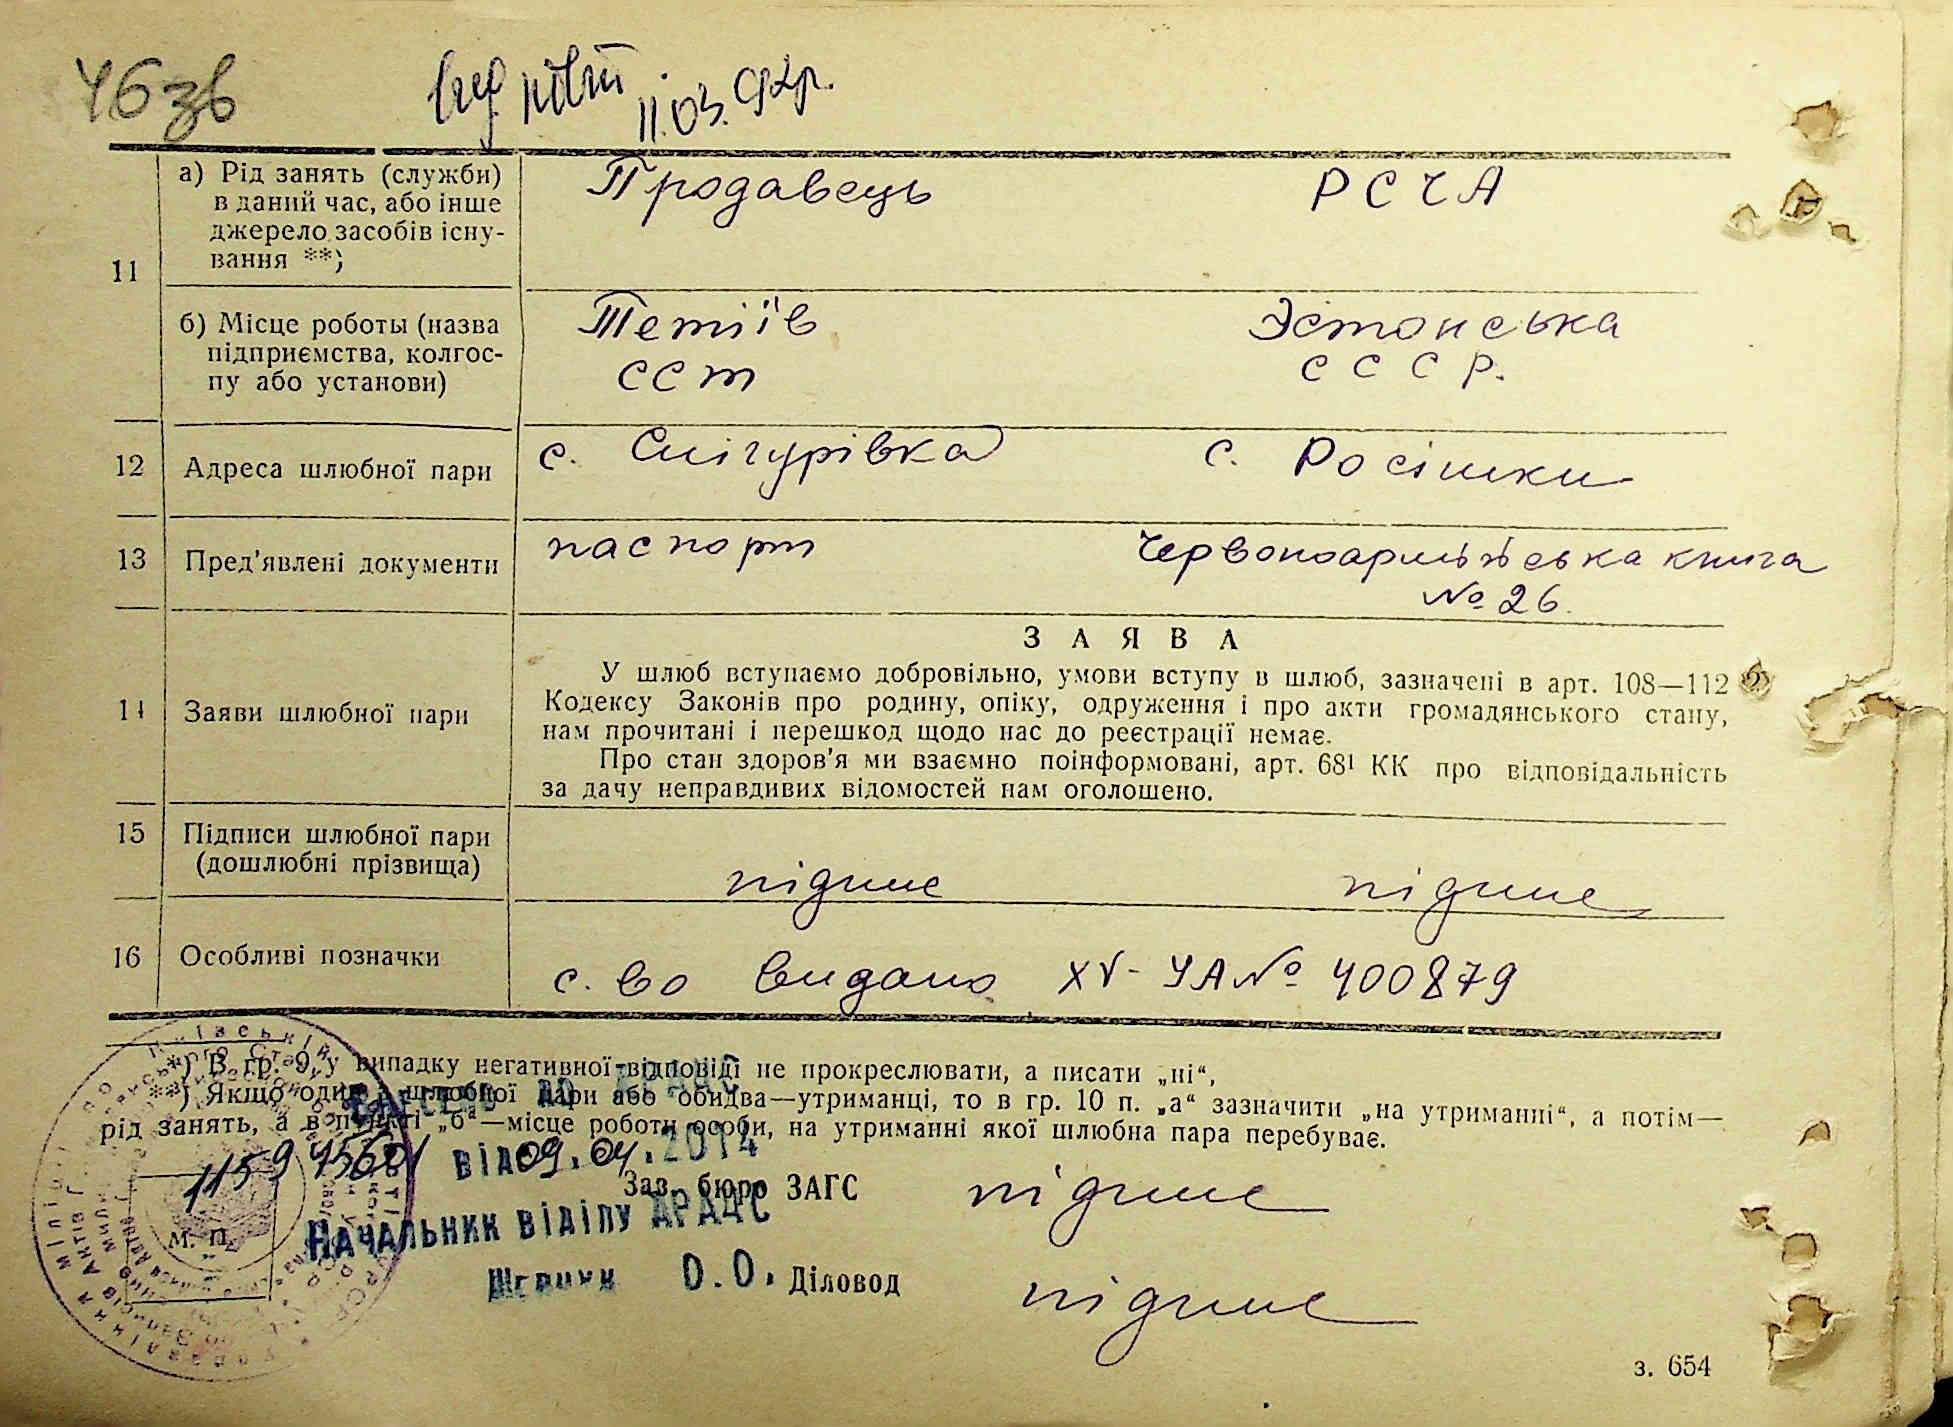 46 зв
11.03.
11
а) Рід занять (служби)
в даний час, або інше
джерело засобів існу-
вання **)
Продавець
РСЧА
б) Місце роботы (назва
підприємства, колгос-
пу або установи)
Тетіїв
ССТ
Эстонська
С С С Р.
12
Адреса шлюбної пари
с. Снігурівка
с. Росішки
13
Пред'явлені документи
паспорт
Червоноармійська книга
№ 26.
14
Заяви шлюбної пари
ЗАЯВА
У шлюб вступаємо добровільно, умови вступу в шлюб, зазначені в арт. 108—112
Кодексу Законів про родину, опіку, одруження і про акти громадянського стану,
нам прочитані і перешкод щодо нас до реєстрації немає.
Про стан здоров'я ми взаємно поінформовані, арт. 68¹ КК про відповідальність
за дачу неправдивих відомостей нам оголошено.
15
Підписи шлюбної пари
(дошлюбні прізвища)
підпис
підпис
16
Особливі позначки
с. во видано XV-УА № 400879
*) В гр. 9 у випадку негативної відповіді не прокреслювати, а писати „ні“,
**) Якщо один з шлюбної пари або обидва—утриманці, то в гр. 10 п. „а“ зазначити „на утриманні“, а потім—
рід занять, а в пункті „б“—місце роботи особи, на утриманні якої шлюбна пара перебуває.
від 09.04.2014
Зав. бюро ЗАГС
підпис
Начальник відділу ДРАЦС
О.О.
М. П.
Діловод
підпис
з. 654